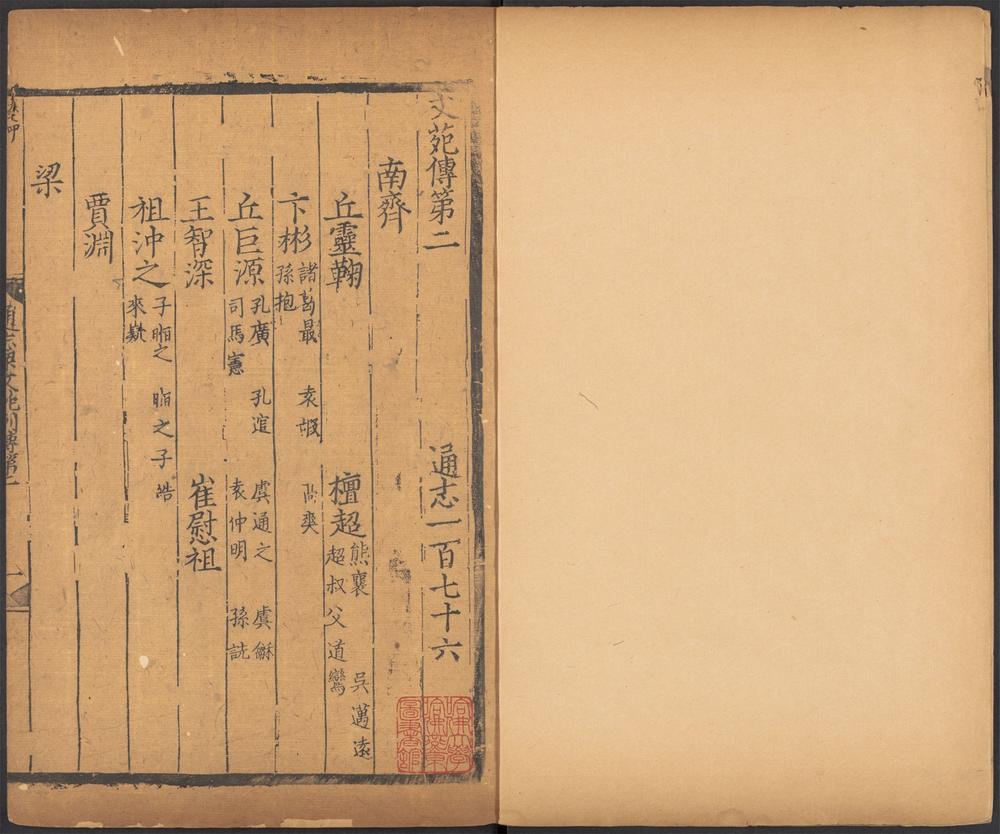 文苑傳第二 通志一百七十六
南齊
丘靈鞠 檀超 熊襄 吳邁遠 超叔父道鸞
卞彬 諸葛勗 袁嘏 高爽 孫抱
丘巨源 孔廣 孔逭 虞通之 虞龢 司馬憲 袁仲明 孫詵
王智深 崔慰祖
祖沖之 子暅之 暅之子皓 來嶷
賈淵
梁
哈佛大學
哈佛燕京
圖書館